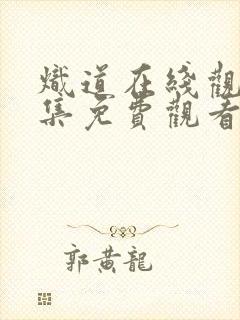 熾道在綫觀
集免費觀看
郭黃龍